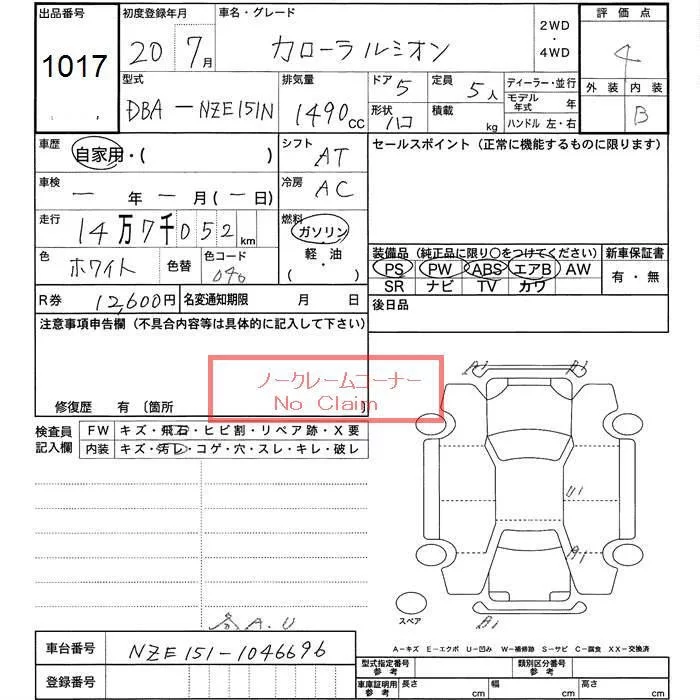 出品番号 初度登録年月 車名・グレード 2WD・4WD 評価点
1017 20 7月 カローラルミオン 4
型式 排気量 ドア 5 定員 5人 ディーラー・並行 外装 内装
DBA-NZE151N 1490cc 形状 ハコ 積載 kg モデル年式 年 B
ハンドル 左・右
車歴 自家用・( ) シフト AT セールスポイント (正常に機能するものに限ります)
車検 ー年ー月(ー日) 冷房 AC
走行 14万7千052km 燃料 ガソリン
軽・油
( )
色 ホワイト 色替 色コード 040
装備品 (純正品に限り○をつけてください) 新車保証書
PS PW ABS エアB AW 有・無
SR ナビ TV カワ
R券 12,600円 名変通知期限 月 日 後日品
注意事項申告欄 (不具合内容等は具体的に記入して下さい)
ノークレームコーナー
No Claim
修復歴 有 〔箇所 〕
検査員記入欄 FW キズ・飛石・ヒビ割・リペア跡・X要
内装 キズ・汚レ・コゲ・穴・スレ・キレ・破レ
A1 A1
U1
A1
スペア
B1
A.U
A-キズ E-エクボ U-凹み W-補修跡 S-サビ C-腐食 XX-交換済
車台番号 NZE151-1046696
登録番号
型式指定番号 参考 類別区分番号 参考
車庫証明用 参考 長さ cm 幅 cm 高さ cm